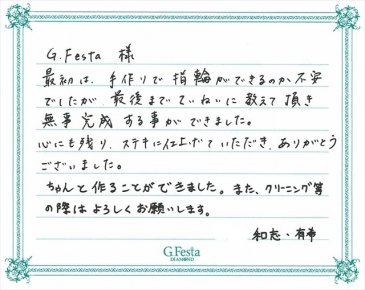 G.Festa 様
最初は、手作りで指輪ができるのか不安
でしたが、最後までていねいに教えて頂き
無事完成する事ができました。
心にも残り、ステキに仕上げていただき、ありがとう
ございました。
ちゃんと作ることができました。また、クリーニング等
の際はよろしくお願いします。
和志・有希
G.Festa
DIAMOND